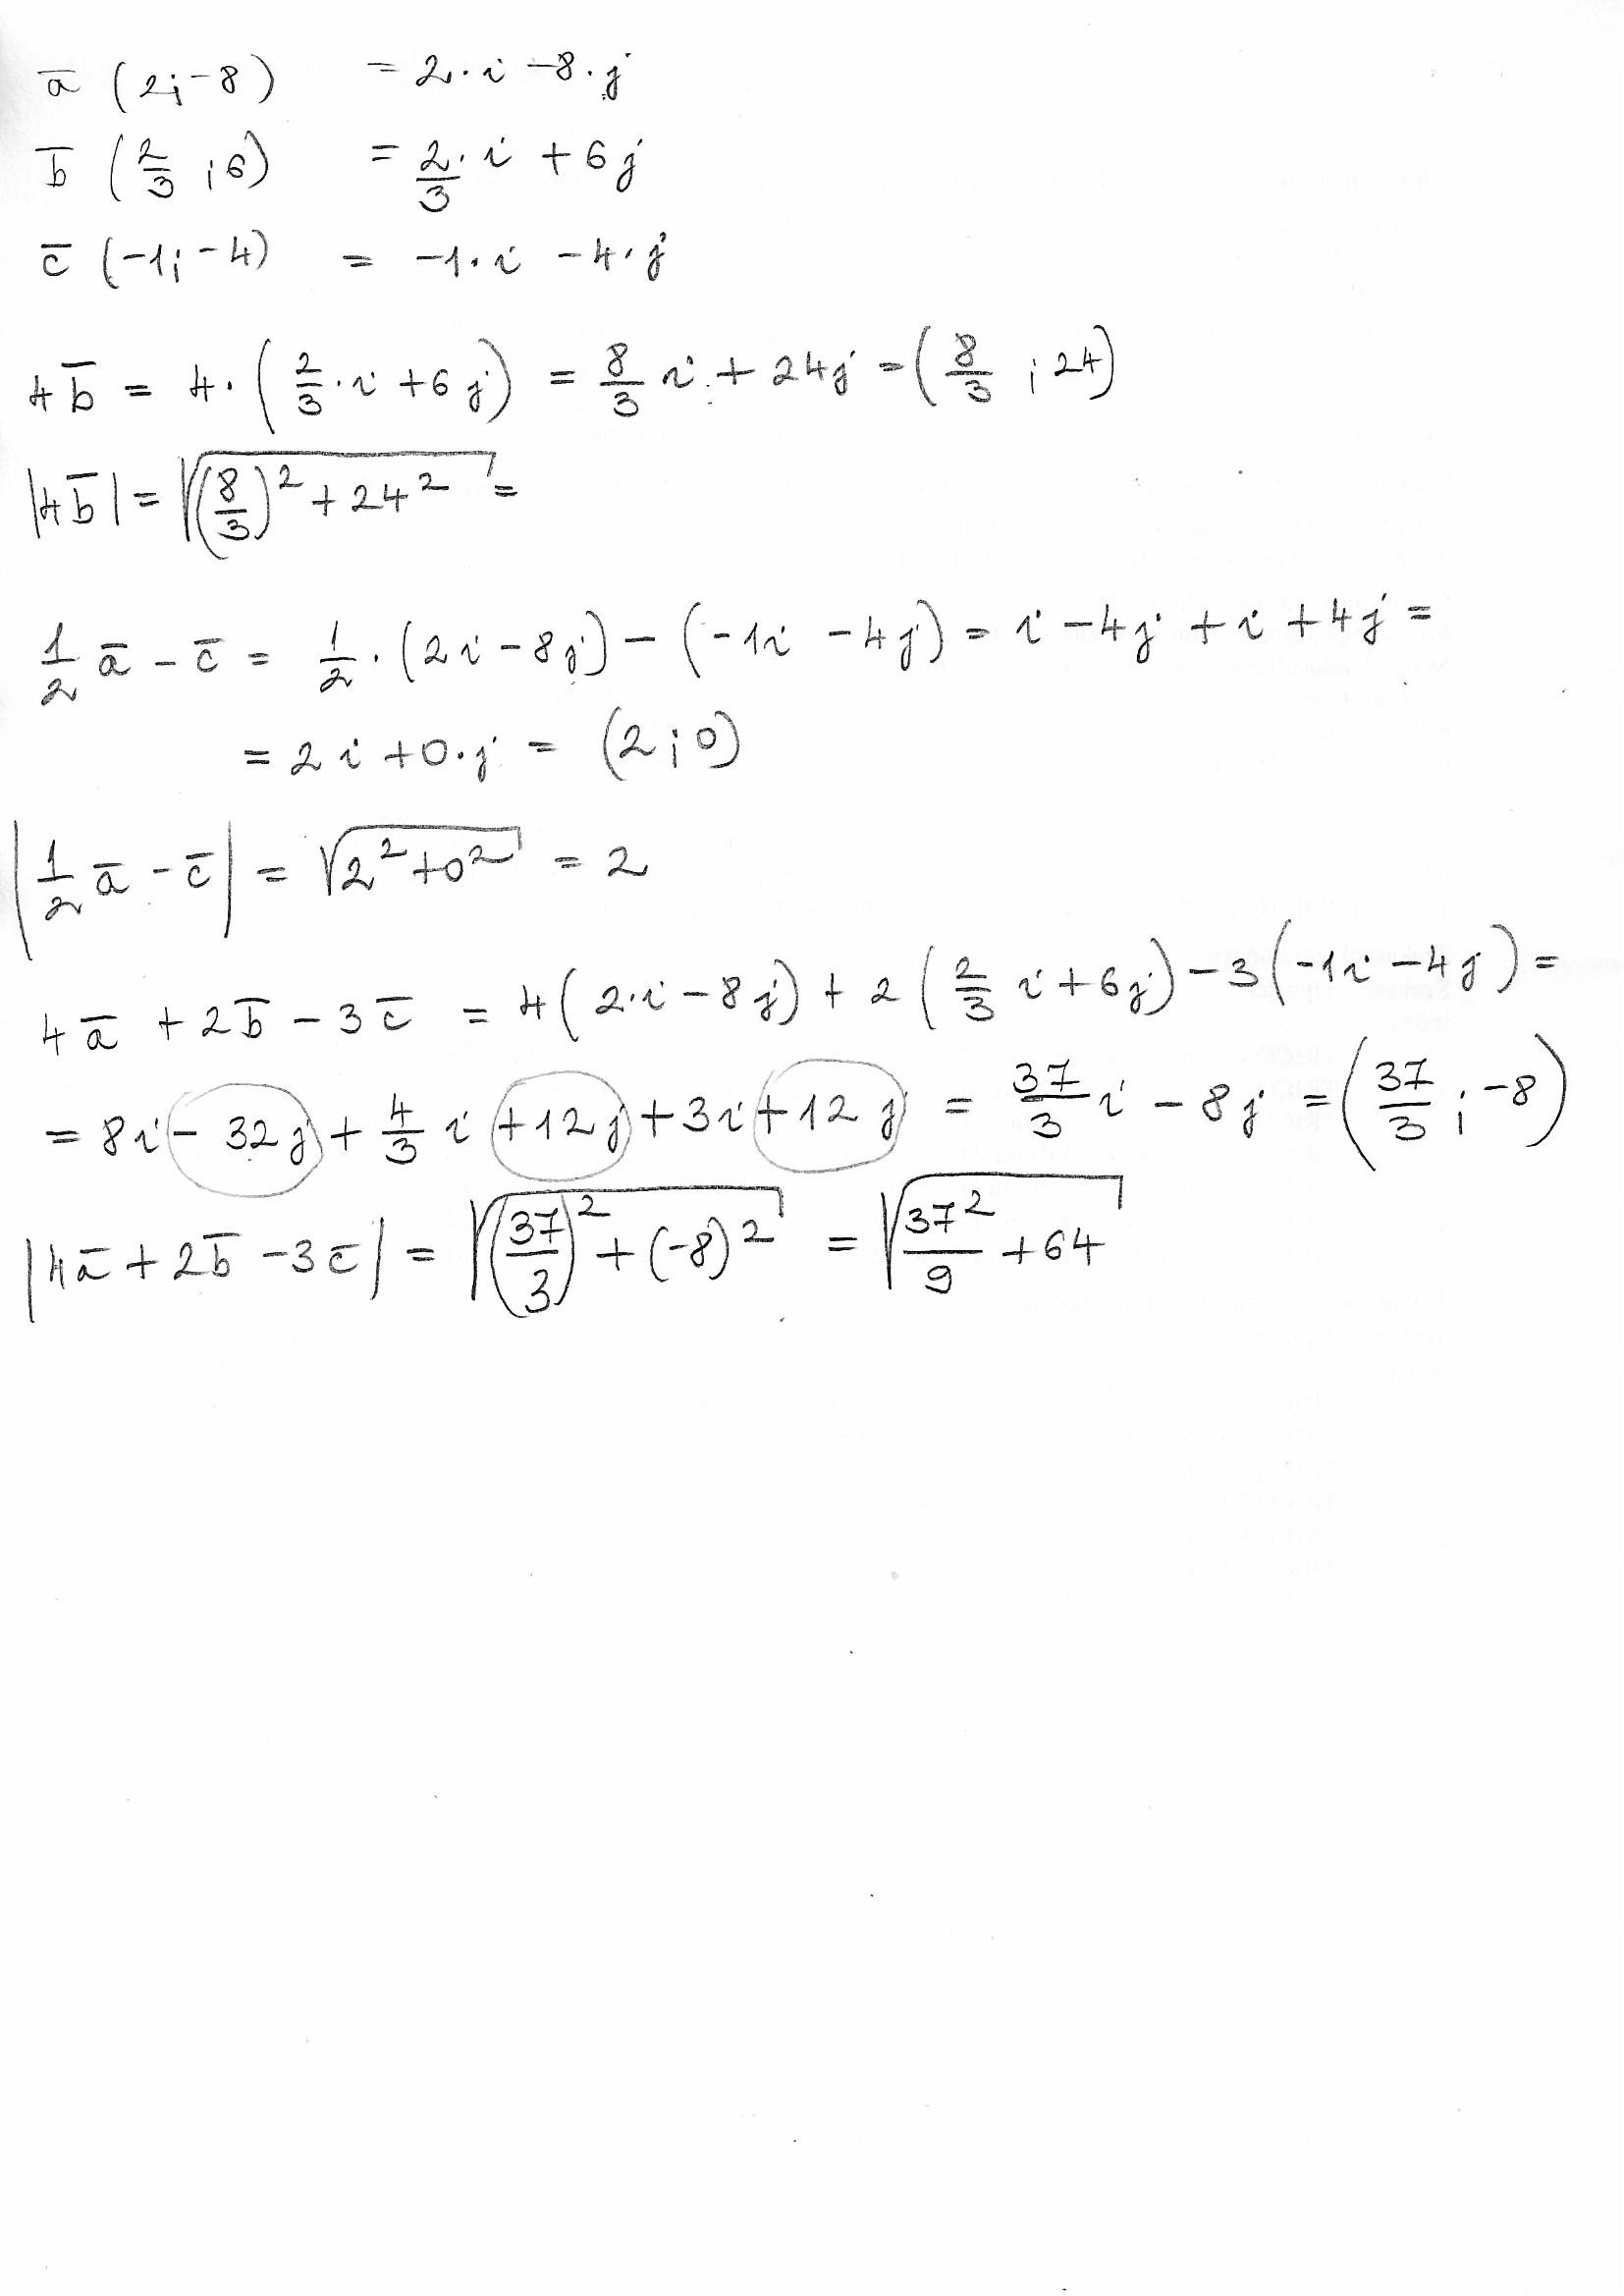 a̅ (2; -8) = 2·i -8·j
b̅ (2/3 ; 6) = 2/3·i + 6j
c̅ (-1; -4) = -1·i -4·j
4b̅ = 4·(2/3·i + 6j) = 8/3 i + 24j = (8/3 ; 24)
|4b̅| = √((8/3)² + 24²) =
1/2 a̅ - c̅ = 1/2·(2i - 8j) - (-1i - 4j) = i - 4j + i + 4j =
= 2i + 0·j = (2; 0)
|1/2 a̅ - c̅| = √(2² + 0²) = 2
4a̅ + 2b̅ - 3c̅ = 4(2·i - 8j) + 2(2/3 i + 6j) - 3(-1i - 4j) =
= 8i - 32j + 4/3 i + 12j + 3i + 12j = 37/3 i - 8j = (37/3 ; -8)
|4a̅ + 2b̅ - 3c̅| = √((37/3)² + (-8)²) = √(37²/9 + 64)